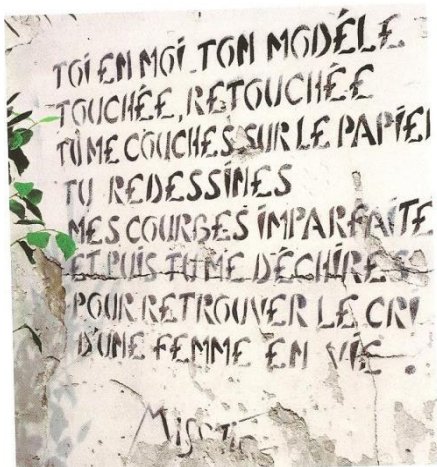 TOI EN MOI. TON MODÉLE
TOUCHÉE, RETOUCHÉE
TU ME COUCHES SUR LE PAPIE
TU REDESSINES
MES COURBES IMPARFAITE
ET PUIS TU ME DÉCHIRES
POUR RETROUVER LE CRI
D'UNE FEMME EN VIE.